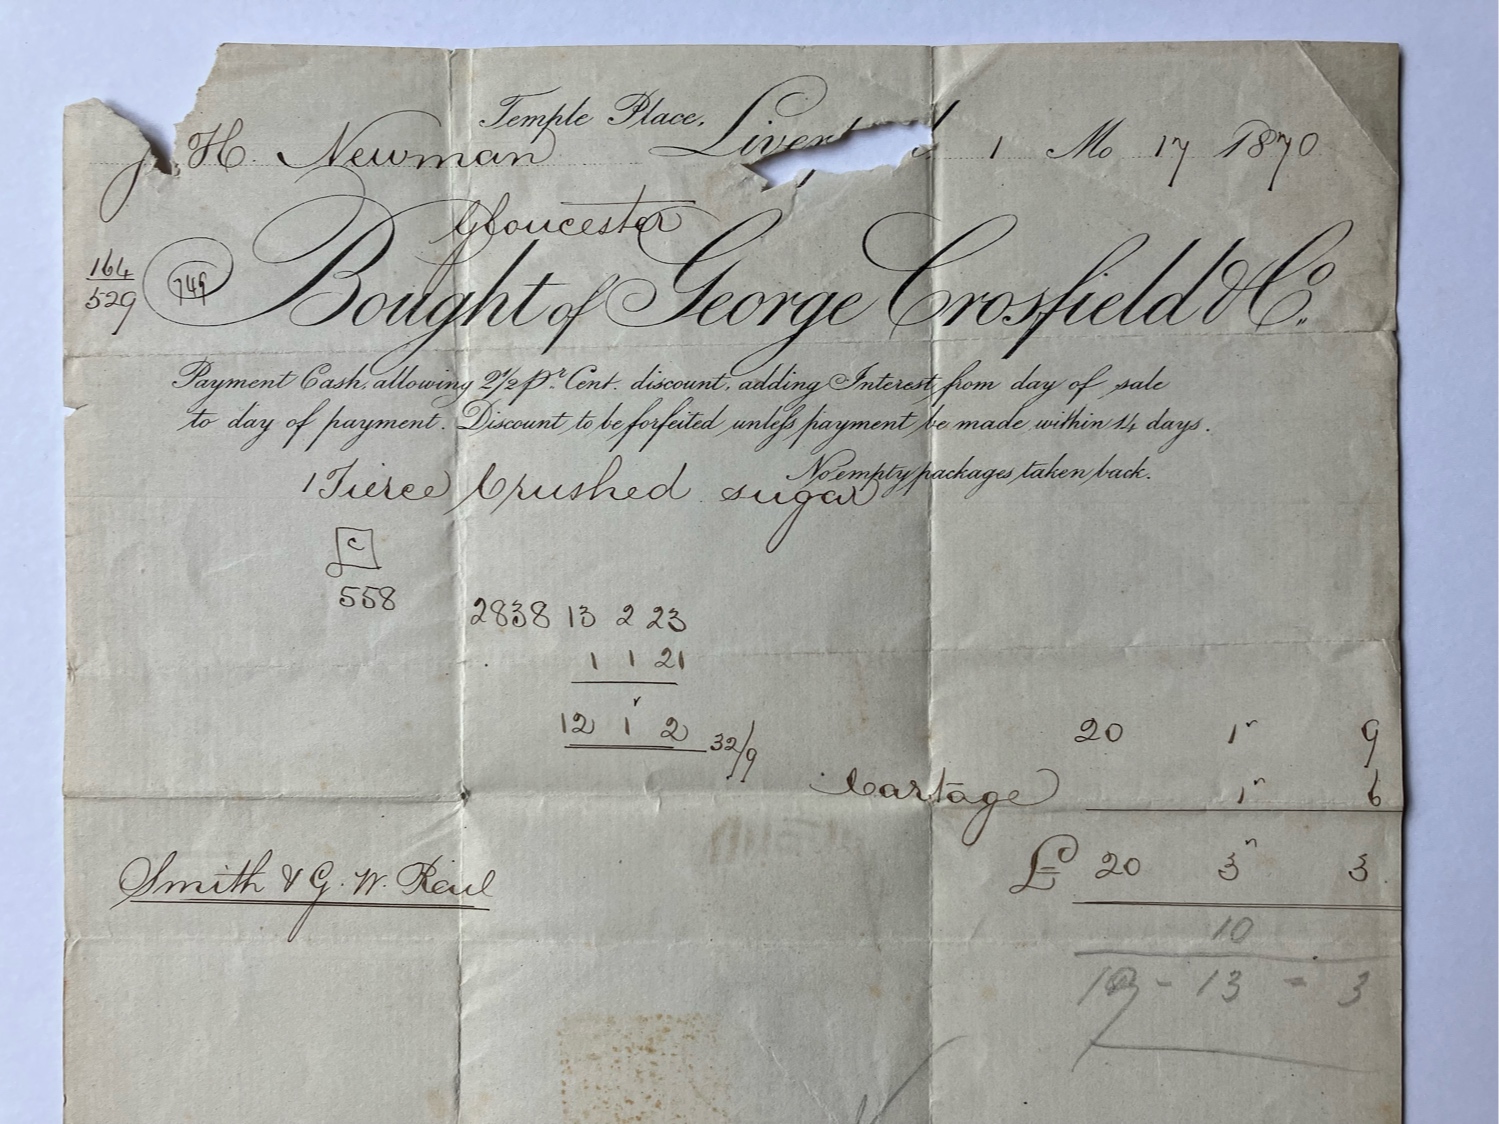 Temple Place,
J. H. Newman Liver 1 Mo 17 1870
Gloucester
164
529
749
Bought of George Crosfield & Co.
Payment Cash, allowing 2½ pr. Cent. discount, adding Interest from day of sale
to day of payment. Discount to be forfeited unless payment be made within 14 days.
No empty packages taken back.
1 Tierce Crushed sugar
C
558
2838 13 2 23
1 1 21
12 1 2 32/9
20 1 9
Cartage 1 6
£ 20 3 3
Smith & G. W.
10
19 - 13 - 3